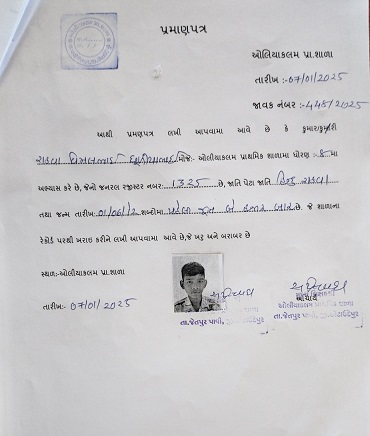 પ્રમાણપત્ર
ઓલિયાકલમ પ્રા.શાળા
તારીખ:-07/01/2025
જાવક નંબર :-448/2025
આથી પ્રમાણપત્ર લખી આપવામાં આવે છે કે કુમાર/કુમારી
રાઠવા ભાઈ મોજે:- ઓલીયાકલમ પ્રાથમિક શાળામાં ધોરણ :- 8 માં
અભ્યાસ કરે છે, જેનો જનરલ રજીસ્ટર નંબર: 1325 છે, જાતિ પેટા જાતિ હિન્દુ રાઠવા
તથા જન્મ તારીખ: 01/06/12 શબ્દોમાં પહેલી જૂન બે હજાર બાર છે. જે શાળાના
રેકોર્ડ પરથી ખરાઈ કરીને લખી આપવામાં આવે છે,જે ખરૂ અને બરાબર છે
સ્થળ:-ઓલીયાકલમ પ્રા.શાળા
તારીખ:- 07/01/2025
આચાર્ય
ઓલીયાકલમ પ્રાથમિક શાળા
તા.જેતપુર પાવી, તા.જેતપુર પાવી, જી.છોટાઉદેપુર